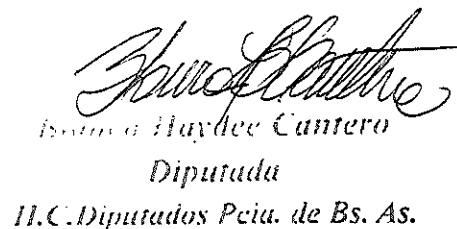 Haydee Cantero
Diputada
H.C.Diputados Pcia. de Bs. As.